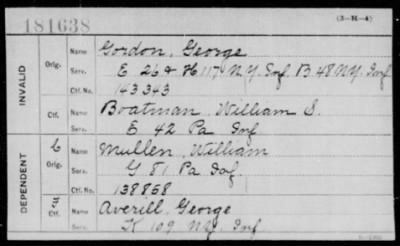 181638
(3-H-4)
INVALID
Orig.
Name Gordon, George
Serv. E 26 & H 117 N.Y. Inf. B 48 N.Y. Inf
Ctf. No. 143343
Ctf.
Name Boatman, William S.
Serv. E 42 Pa Inf
DEPENDENT
Orig.
Name Mullen, William
Serv. G 81 Pa Inf.
Ctf. No. 138868
Ctf.
Name Averill, George
Serv. K 109 N.Y. Inf